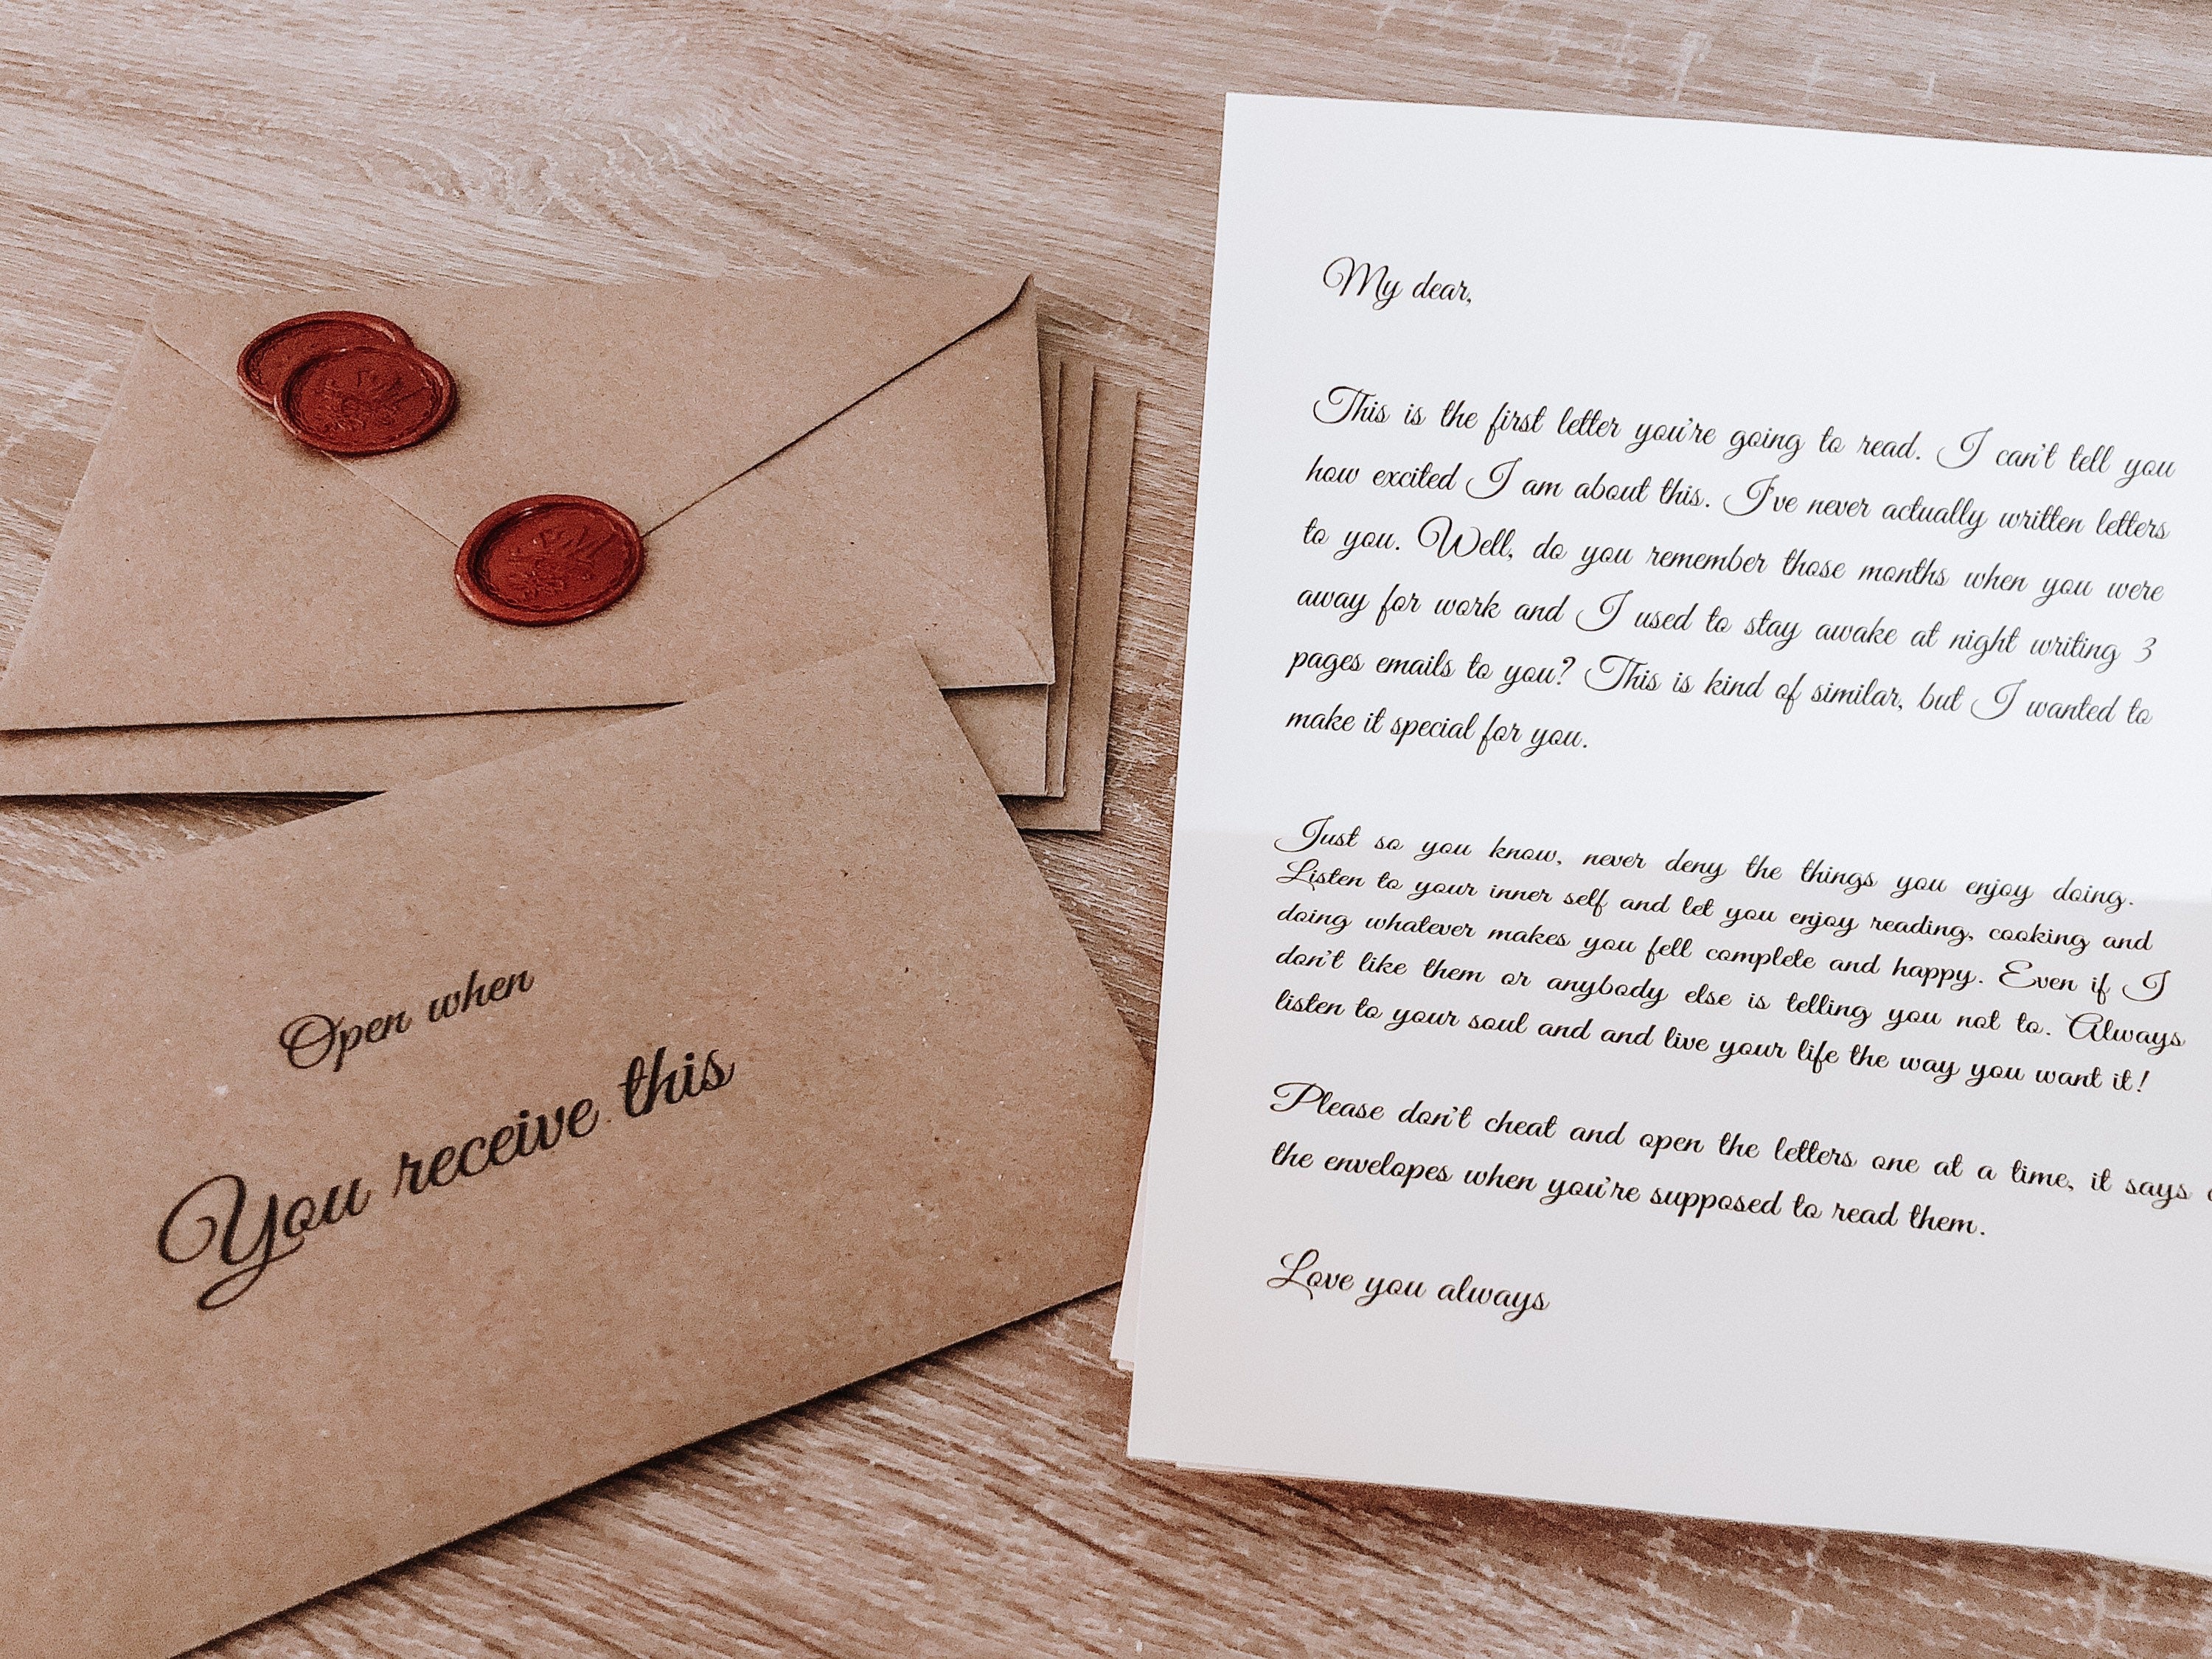 Open when
You receive this
My dear,
This is the first letter you're going to read. I can't tell you
how excited I am about this. I've never actually written letters
to you. Well, do you remember those months when you were
away for work and I used to stay awake at night writing 3
pages emails to you? This is kind of similar, but I wanted to
make it special for you.
Just so you know, never deny the things you enjoy doing.
Listen to your inner self and let you enjoy reading, cooking and
doing whatever makes you fell complete and happy. Even if I
don't like them or anybody else is telling you not to. Always
listen to your soul and and live your life the way you want it!
Please don't cheat and open the letters one at a time, it says
the envelopes when you're supposed to read them.
Love you always